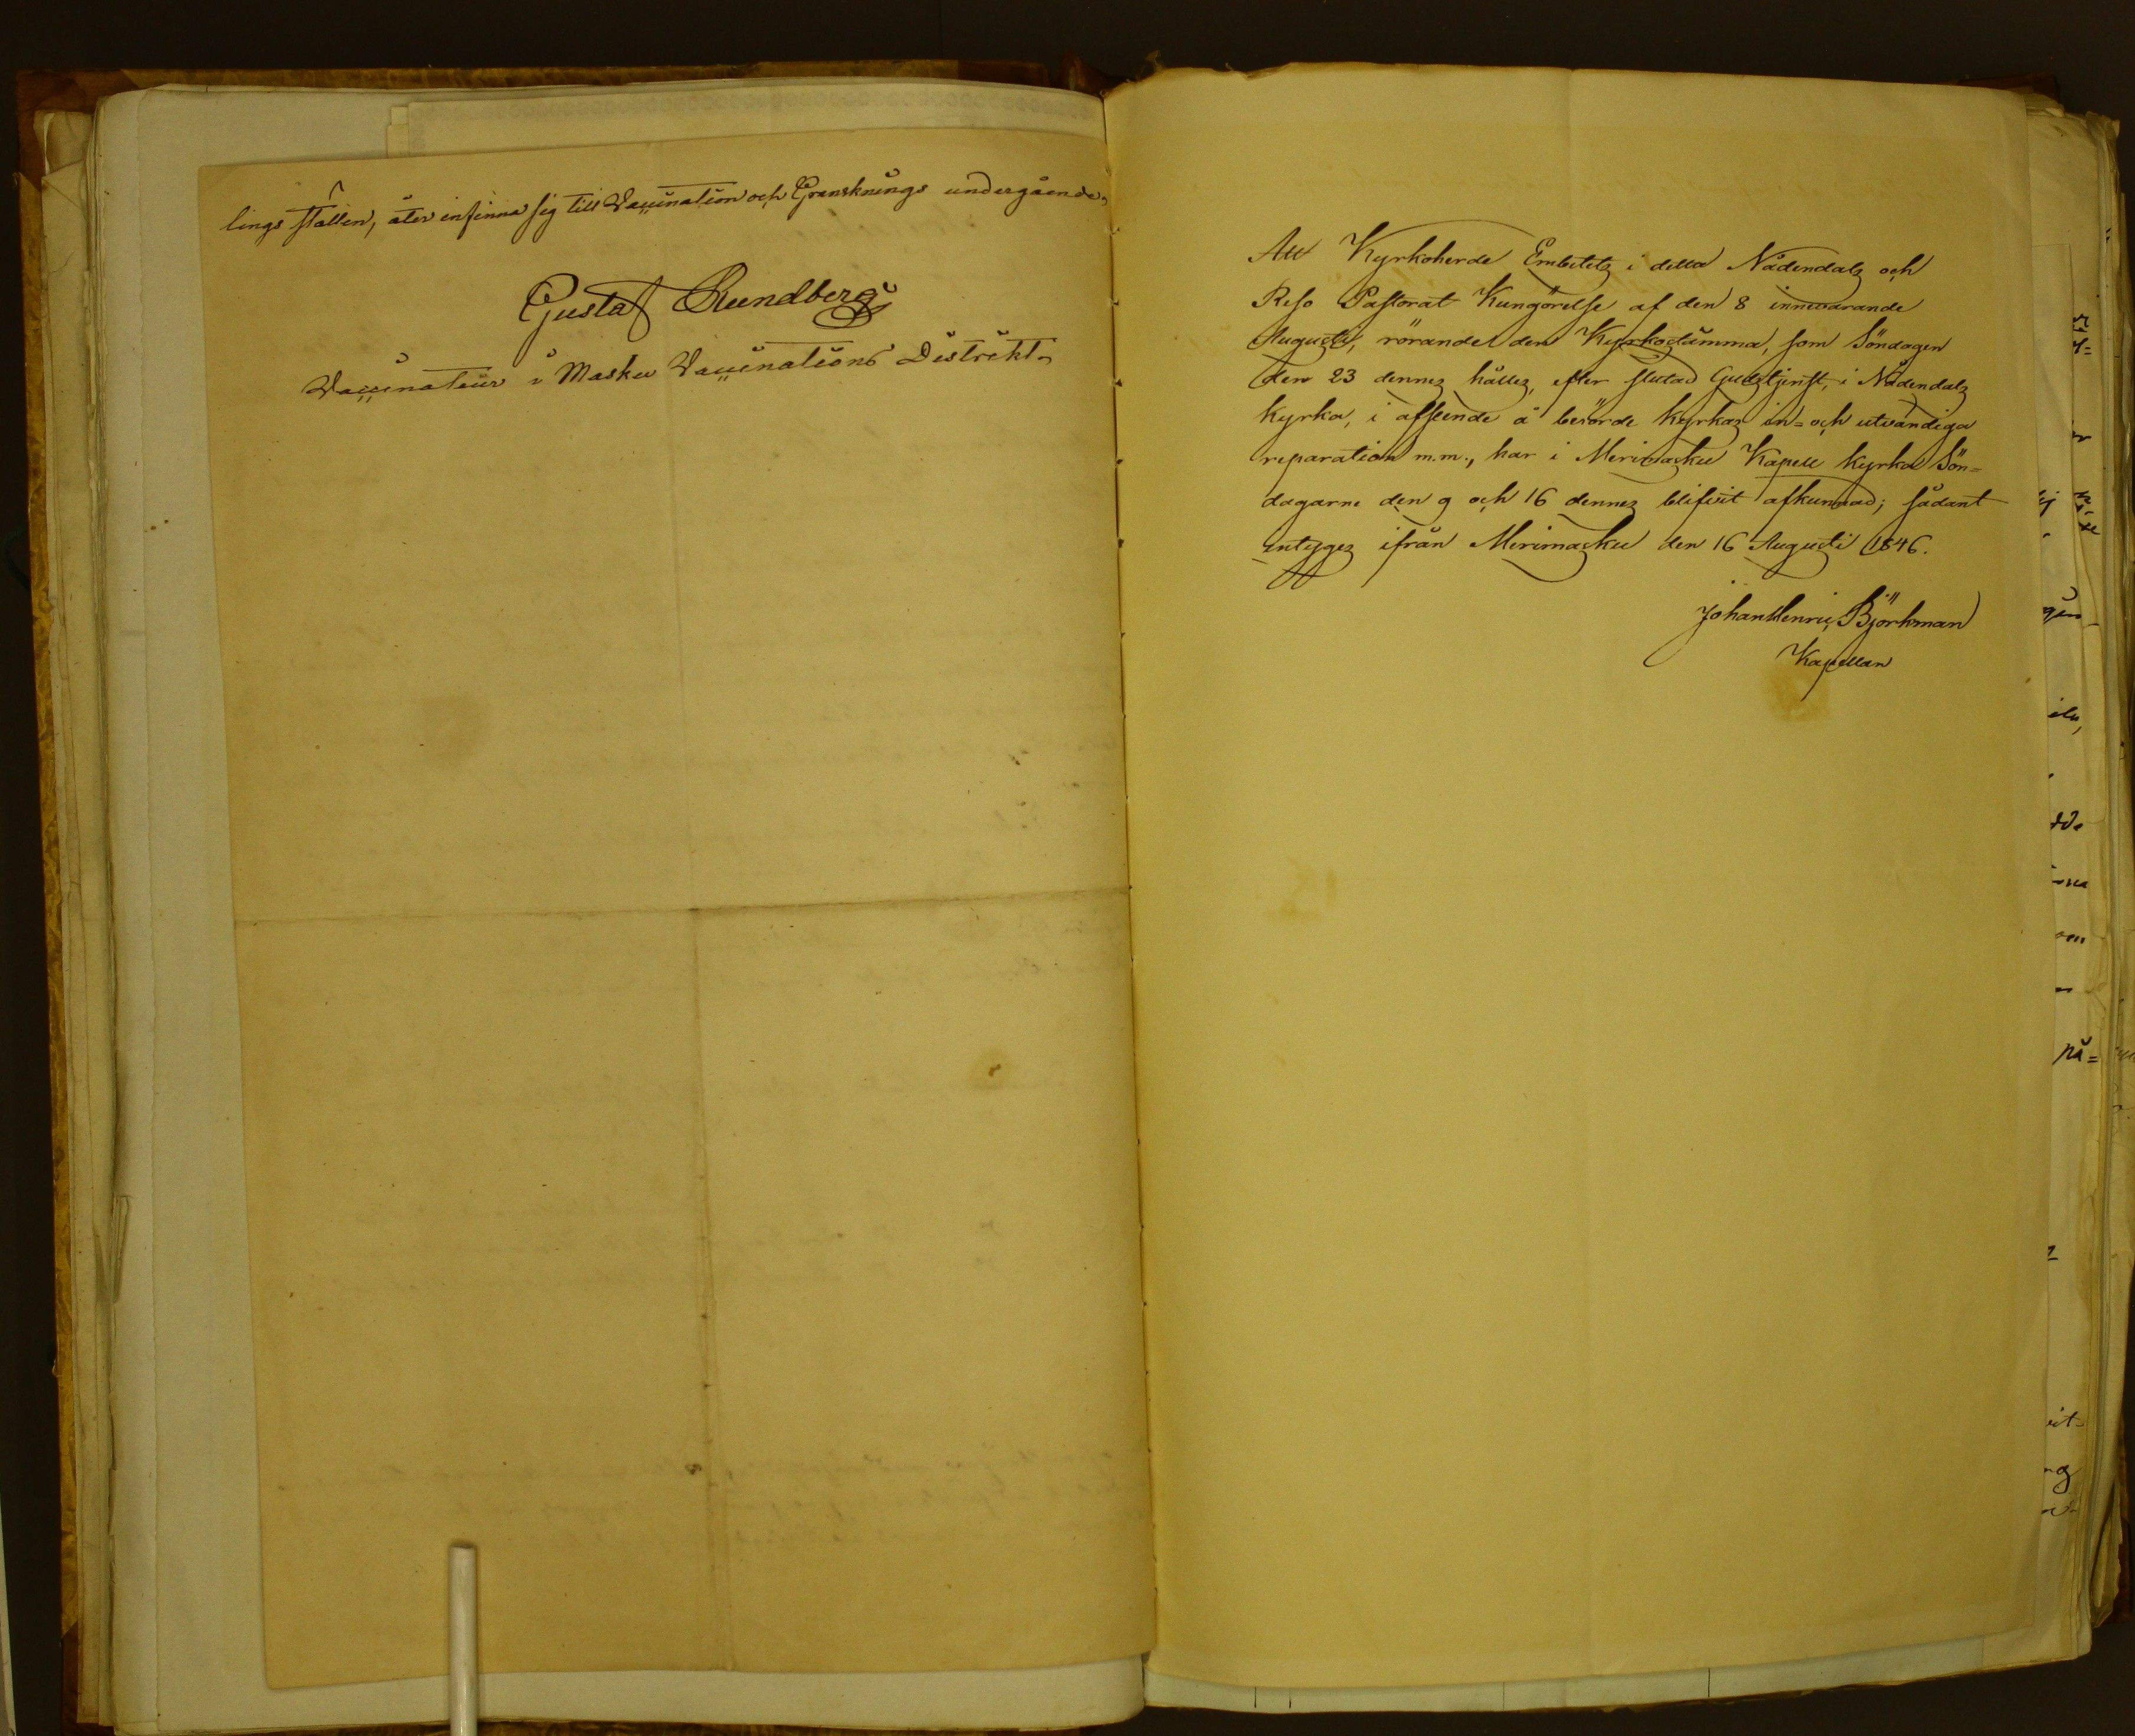 lings ställen, åter infinna sig till Vaccination och Gransknings undergående,
Gustaf Rundberg
Vaccinateur i Masku Vaccinations Distrikt
Att Kyrkoherde Embetets i detta Nådendals och
Reso Pastorat Kungörelse af den 8 innevarande
Augusti, rörande den Kyrkostämma, som Söndagen
den 23 dennes hålles, efter slutad Gudstjenst, i Nådendals
kyrka, i afseende å berörde kyrkas in= och utvändiga
reparation m.m., har i Merimasku Kapell kyrka Sön=
dagarne den 9 och 16 dennes blifvit afkunnad; sådant
intyges ifrån Merimasku den 16 Augusti 1846.
Johan Henric Björkman
Kapellan